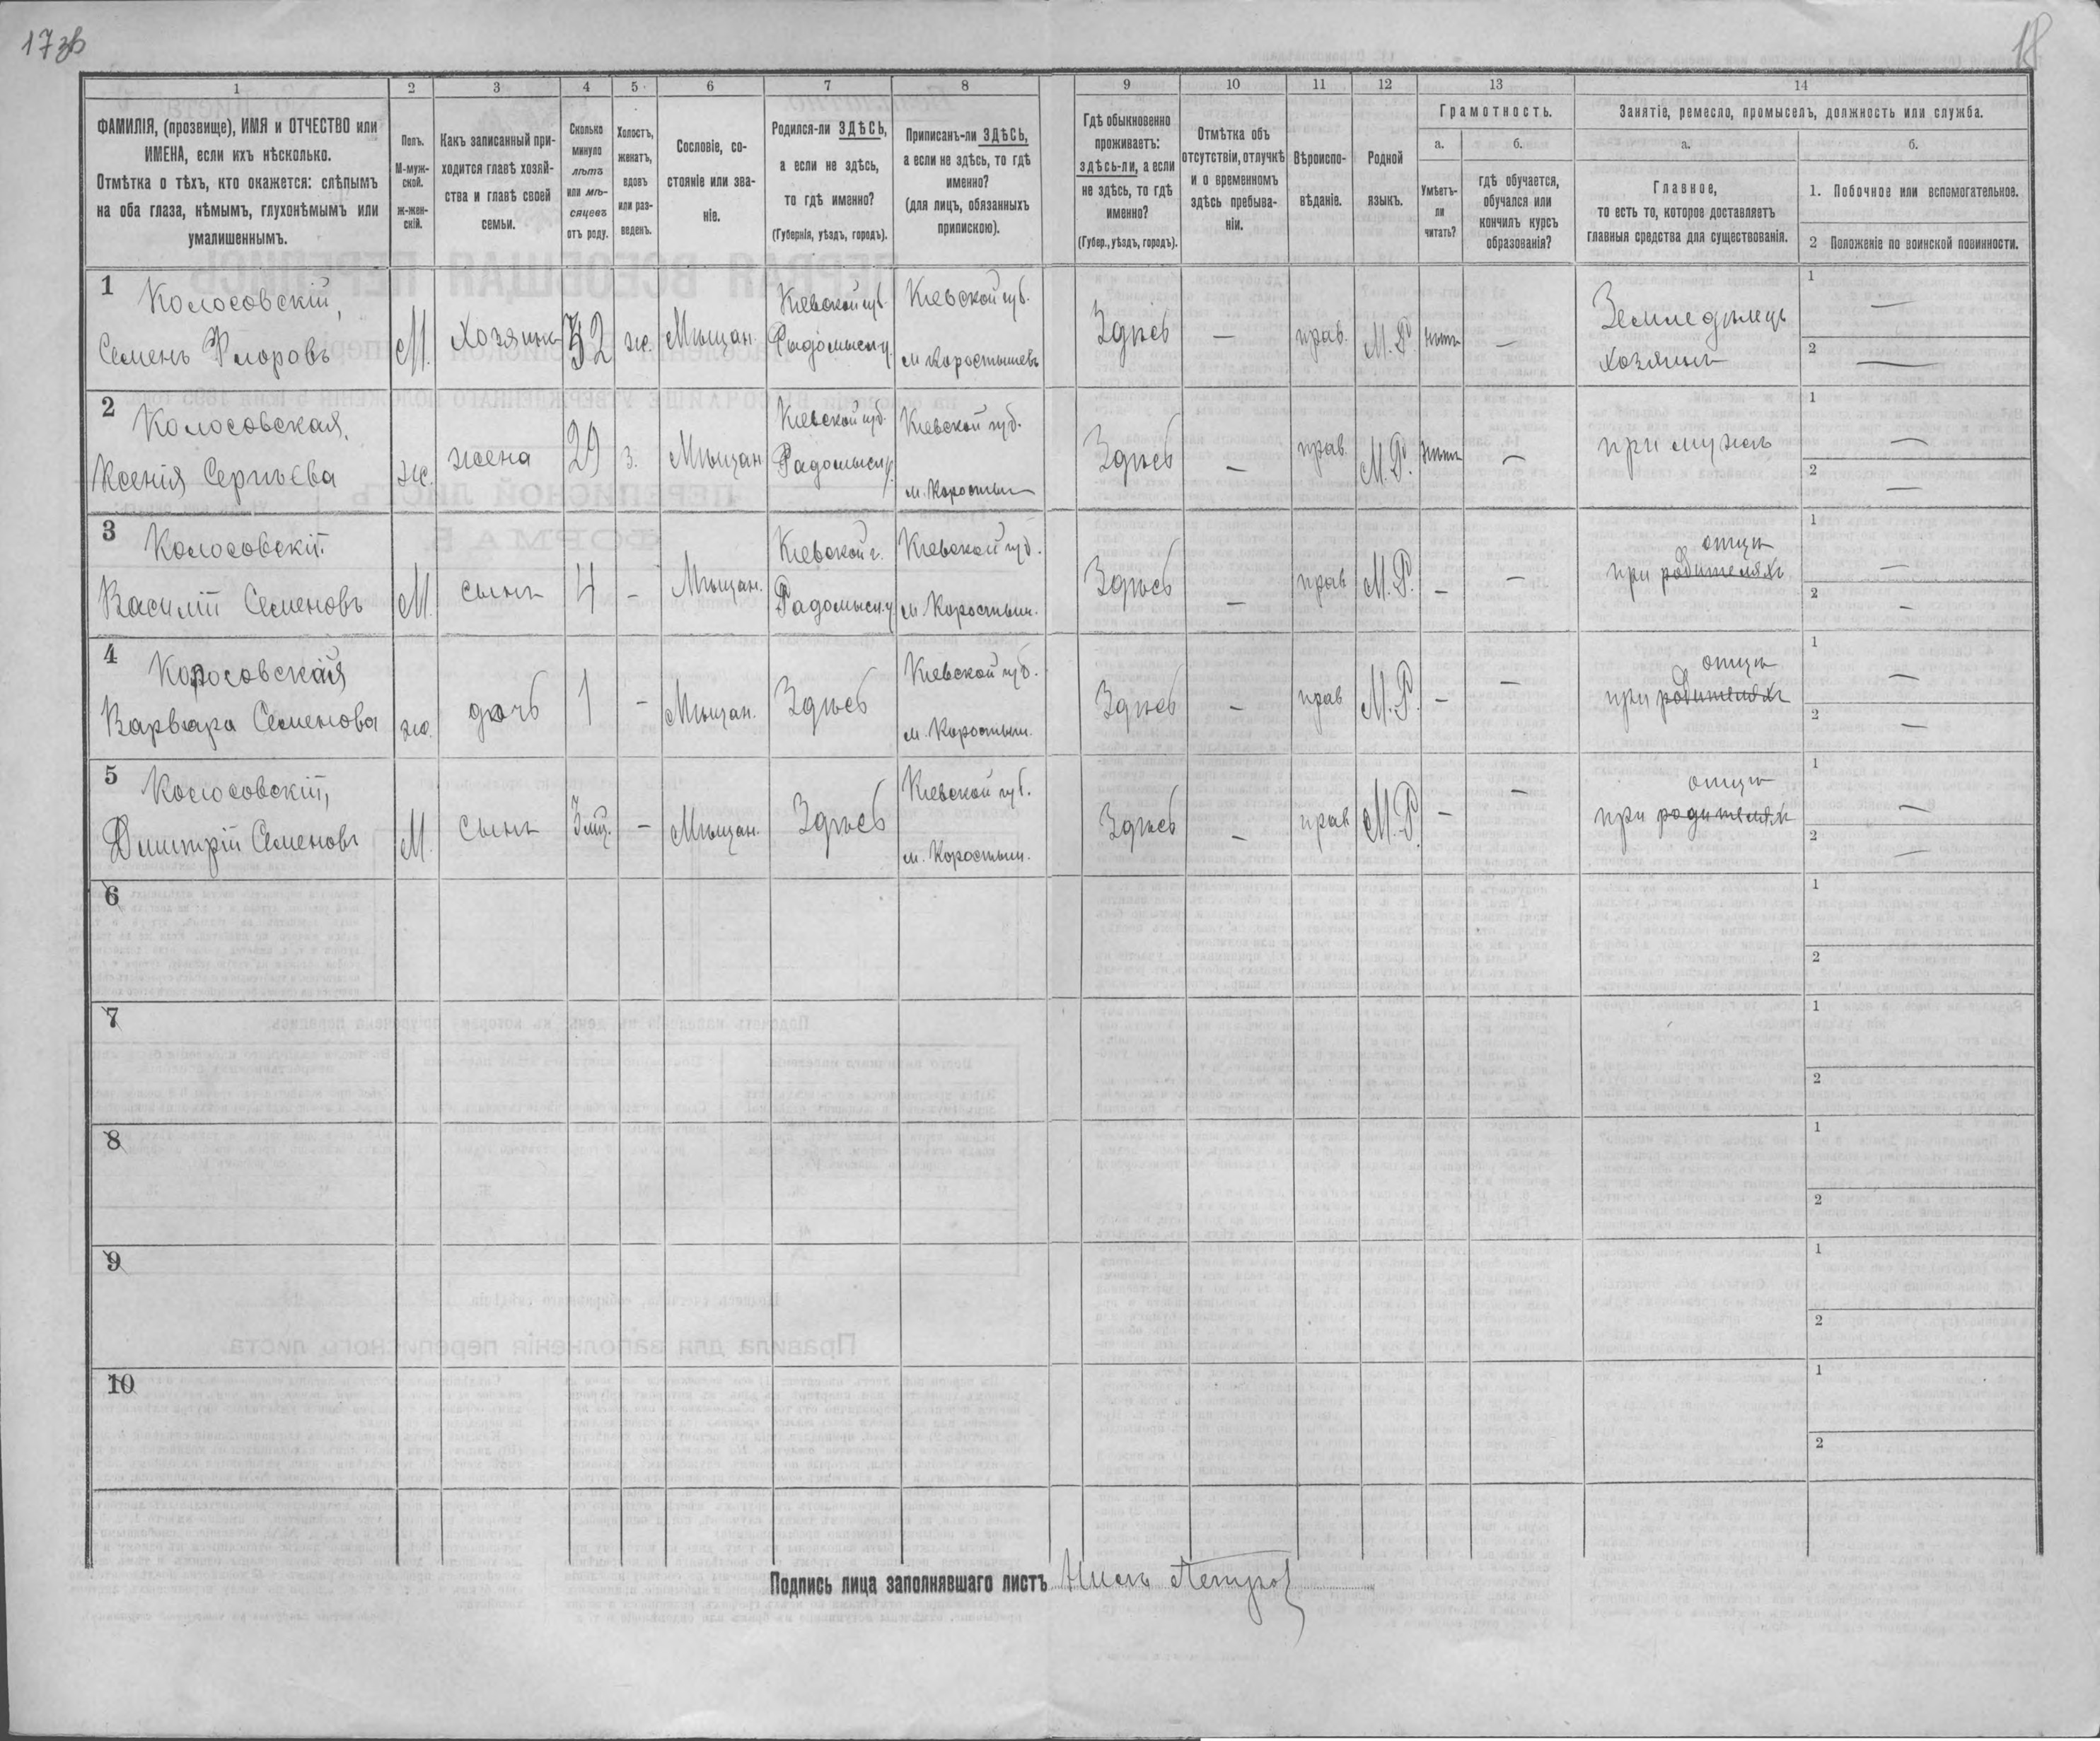 17 зв
18
1
2
3
4
5
6
7
8
9
10
11
12
13
14
ФАМИЛІЯ, (прозвище), ИМЯ и ОТЧЕСТВО или
ИМЕНА, если ихъ нѣсколько.
Отмѣтка о тѣхъ, кто окажется: слѣпымъ
на оба глаза, нѣмымъ, глухонѣмымъ или
умалишеннымъ.
Полъ.
М-муж-
ской.
ж-жен-
скій.
Какъ записанный при-
ходится главѣ хозяй-
ства и главѣ своей
семьи.
Сколько
минуло
лѣтъ
или мѣ-
сяцевъ
отъ роду.
Холостъ,
женатъ,
вдовъ
или раз-
веденъ.
Сословіе, со-
стояніе или зва-
ніе.
Родился-ли ЗДѢСЬ,
а если не здѣсь,
то гдѣ именно?
(Губернія, уѣздъ, городъ).
Приписанъ-ли ЗДѢСЬ,
а если не здѣсь, то гдѣ
именно?
(для лицъ, обязанныхъ
припискою).
Гдѣ обыкновенно
проживаетъ:
здѣсь-ли, а если
не здѣсь, то гдѣ
именно?
(Губер., уѣздъ, городъ).
Отмѣтка объ
отсутствіи, отлучкѣ
и о временномъ
здѣсь пребыва-
ніи.
Вѣроиспо-
вѣданіе.
Родной
языкъ.
Грамотность.
а.
Умѣетъ-
ли
читать?
б.
гдѣ обучается,
обучался или
кончилъ курсъ
образованія?
Занятіе, ремесло, промыселъ, должность или служба.
а.
Главное,
то есть то, которое доставляетъ
главныя средства для существованія.
б.
1. Побочное или вспомогательное.
2 Положеніе по воинской повинности.
1
Колосовскій,
Семенъ Флоровъ
М.
Хозяинъ
32
ж.
Мѣщан.
Кіевской губ.
Радомысл у.
Кіевской губ.
м Коростышевъ
Здѣсь
—
прав.
М. Р.
нѣтъ
—
Земледѣлецъ
хозяинъ
1 —
2 —
2
Колосовская,
Ксенія Сергѣева
ж.
жена
29
з.
Мѣщан
Кіевской губ.
Радомысл у.
Кіевской губ.
м. Коростыш
Здѣсь
—
прав.
М. Р.
нѣтъ
—
при мужѣ
1 —
2 —
3
Колосовскій
Василій Семеновъ
М.
сынъ
4
-
Мѣщан.
Кіевской г.
Радомысл у
Кіевской губ.
м Коростыш.
Здѣсь
—
прав
М. Р.
-
—
отцѣ
при родителяхъ
1 —
2 -
4
Колосовская
Варвара Семенова
ж.
дочь
1
-
Мѣщан.
Здѣсь
Кіевской губ.
м. Коростыш.
Здѣсь
—
прав
М. Р.
-
—
отцѣ
при родителяхъ
1 —
2 —
5
Колосовскій,
Димитрій Семеновъ
М.
сынъ
3 мѣс.
-
Мѣщан.
Здѣсь
Кіевской губ.
м. Коростыш.
Здѣсь
—
прав
М. Р.
-
—
отцѣ
при родителяхъ
1 —
2 —
6
1
2
7
1
2
8
1
2
9
1
2
10
1
2
Подпись лица заполнявшаго листъ